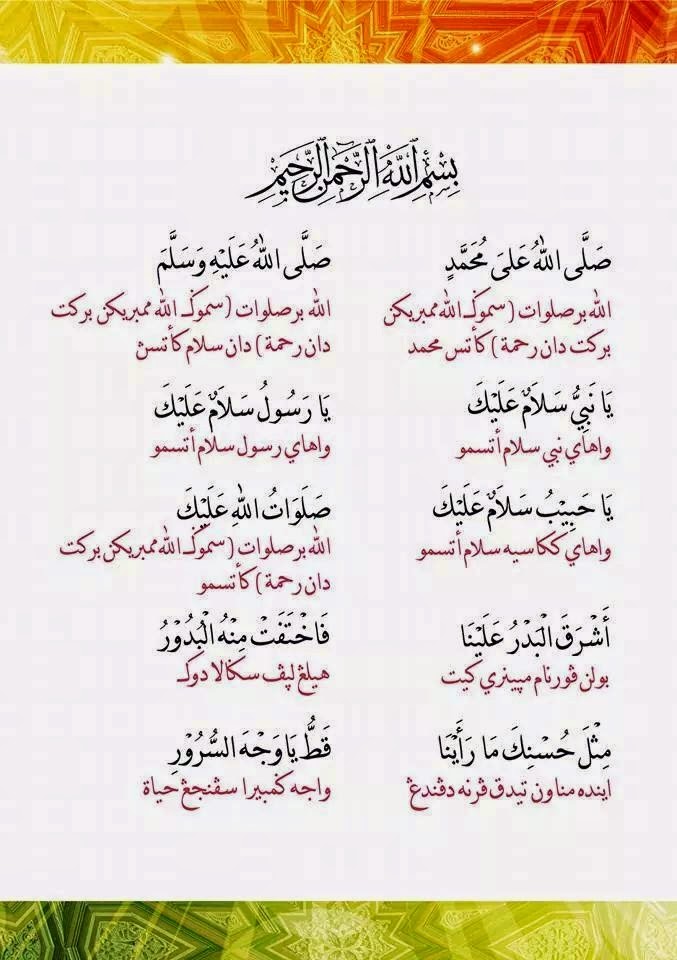 بِسْمِ اللَّهِ الرَّحْمَٰنِ الرَّحِيمِ
صَلَّى اللهُ عَلَىَ مُحَمَّدٍ
صَلَّى اللهُ عَلَيْهِ وَسَلَّمَ
الله برصلوات (سموݢـ الله ممبريكن
بركت دان رحمة) كأتس محمد
الله برصلوات (سموݢـ الله ممبريكن بركت
دان رحمة) دان سلام كأتسڽ
يَا نَبِيُّ سَلَامٌ عَلَيْكَ
يَا رَسُولُ سَلَامٌ عَلَيْكَ
واهاي نبي سلام أتسمو
واهاي رسول سلام أتسمو
يَا حَبِيْبُ سَلَامٌ عَلَيْكَ
صَلَوَاتُ اللهِ عَلَيْكَ
واهاي ككاسيه سلام أتسمو
الله برصلوات (سموݢـ الله ممبريكن بركت
دان رحمة) كأتسمو
أَشْرَقَ الْبَدْرُ عَلَيْنَا
فَاخْتَفَتْ مِنْهُ الْبُدُوْرُ
بولن ڤورنام مپينري كيت
هيلڠ لپڤ سݢالا دوكـ
مِثْلَ حُسْنِكَ مَا رَأَيْنَا
قَطُّ يَا وَجْهَ السُّرُوْرِ
اينده مناون تيدق ڤرنه دڤندڠ
واجه ݢمبيرا سڤنجڠ حياة